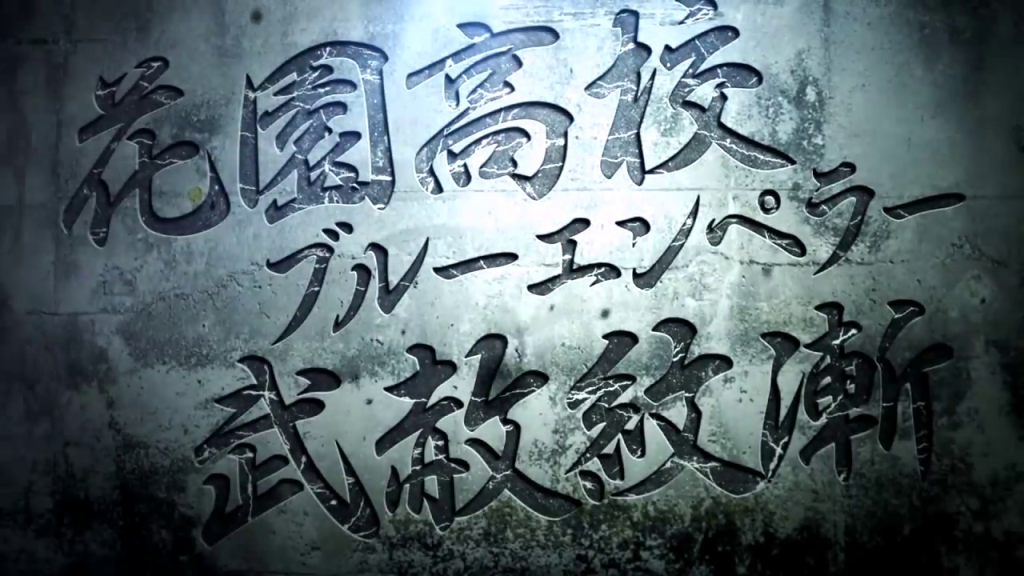 花園高校
ブルーエンペラー
武敵紋漸